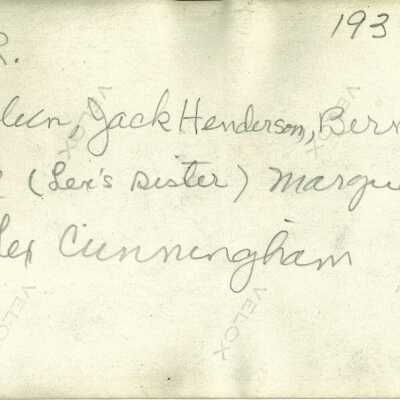 193
R.
leen, Jack Henderson, Bern
(Lex's sister) Margue
lex Cunningham
VELOX
VELOX
VELOX
VELOX